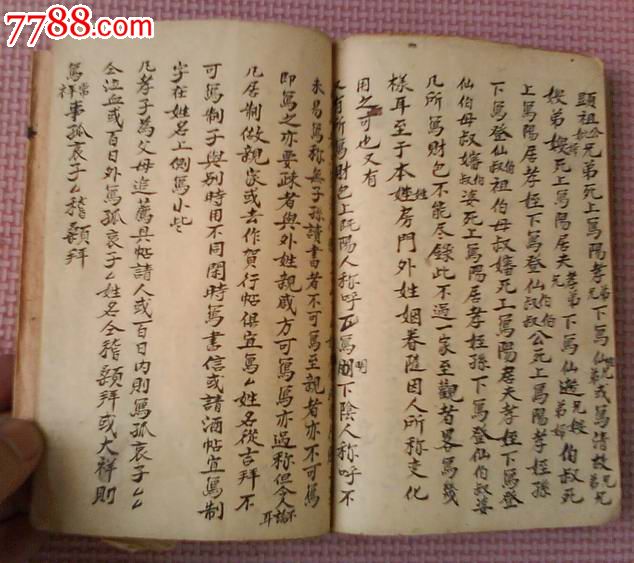 7788.com
頭祖公兄弟死上寫陽孝弟兄下寫仙
嫂弟嫂死上寫陽居夫弟兄下寫仙逝兄嫂伯叔死
上寫陽居孝姪下寫登仙叔伯公死上寫陽孝姪孫
下寫登仙叔伯祖伯母叔嬸死上寫陽居夫孝姪下寫登
仙伯母叔嬸伯叔婆死上寫陽居孝姪孫下寫登仙叔伯婆
凡所寫財包不能尽錄此不過一家至觀者畧寫幾
樣耳至于本姓房門外姓姻眷隨因人所称变化
用之可也又有
又有所寫財包上既陽人称呼瓦寫明下陰人称呼不
未易寫称無子孫請書者不可寫至親者亦不可寫
即寫之亦要疎者與外姓親戚方可寫寫亦過称但今不論耳
凡居制做親家或去作賀行帖俱宜寫厶姓名從吉拜不
可寫制子與別時用不同閑時寫書信或請酒帖宜寫制
字在姓名上側寫小些
凡孝子為父母追薦具帖請人或百日内則寫孤哀子厶厶
仝泣血或百日外寫孤哀子厶姓名仝稽顙拜或大祥則
寫常祥事孤哀子厶稽顙拜